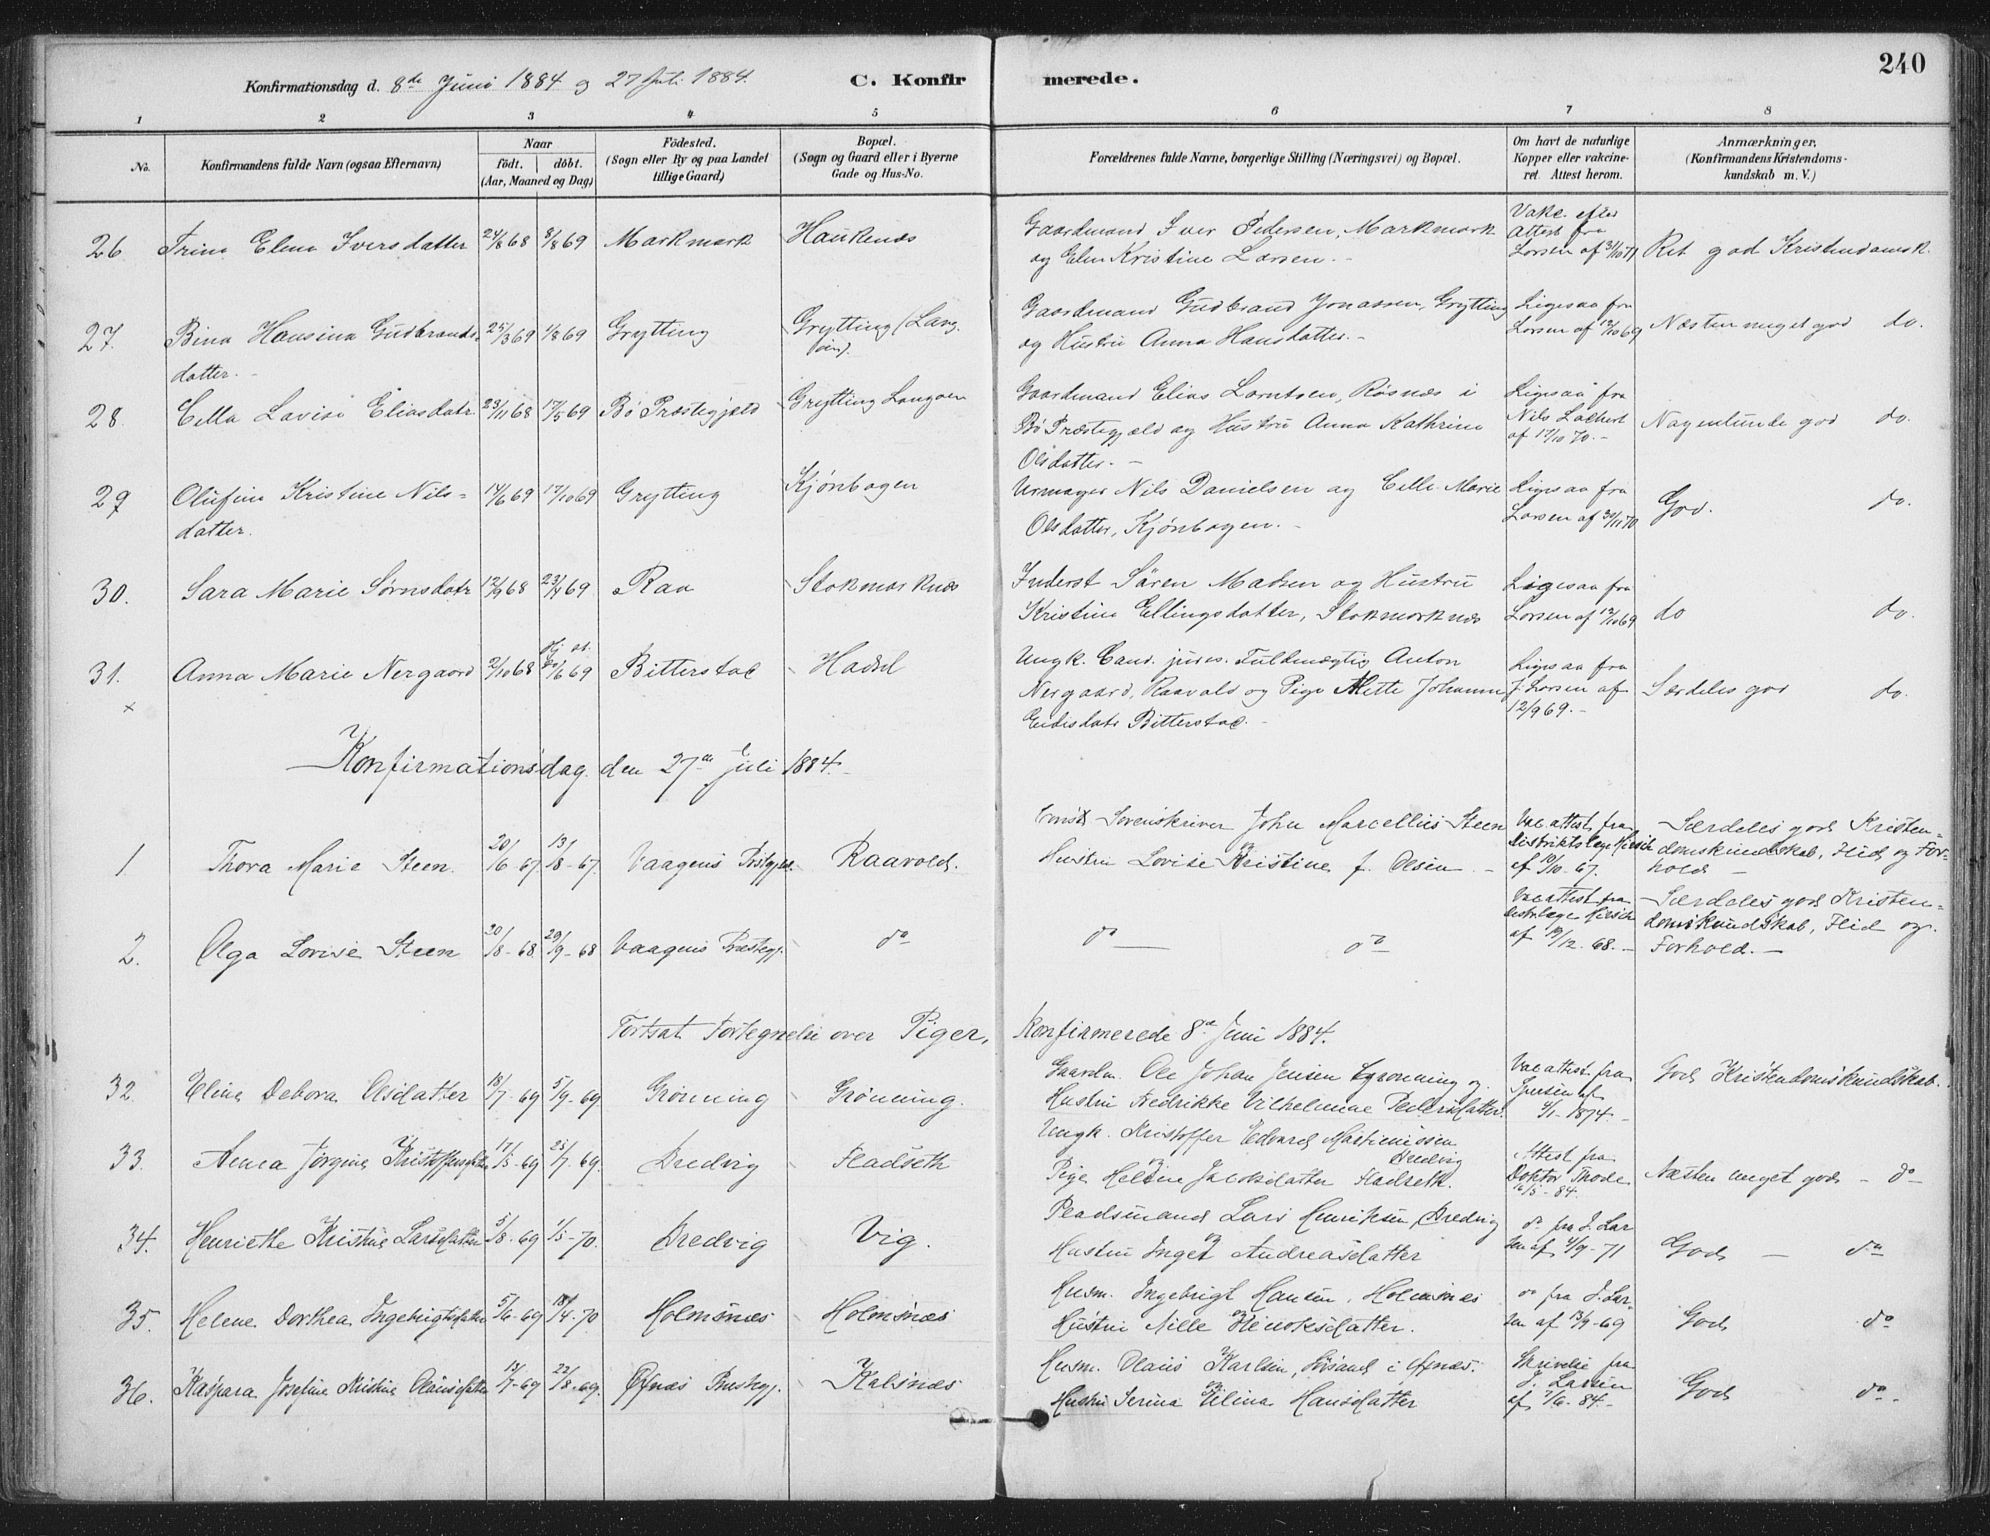 240
Konfirmationsdag d. 8de Juni 1884 og 27 Juli 1884.
C. Konfirmerede.
1 2 3 4 5 6 7 8
No.
Konfirmandens fulde Navn (ogsaa Efternavn)
Naar
födt. döbt.
(Aar, Maaned og Dag)
Födested.
(Sogn eller By og paa Landet
tillige Gaard)
Bopæl.
(Sogn og Gaard eller i Byerne
Gade og Hus-No.
Forældrenes fulde Navne, borgerlige Stilling (Næringsvei) og Bopæl.
Om havt de naturlige
Kopper eller vakcine-
ret. Attest herom.
Anmærkninger,
(Konfirmandens Kristendoms-
kundskab m. V.)
26 Trina Elena Iversdatter 24/8 68 8/8 69 Markmark Haukenæs
Gaardmand Iver Pedersen, Markmark
og Elen Kristine Larsen.
Vakc. efter
Attest fra
Larsen af 31/10 71
Ret god Kristendomsk.
27. Bina Hansina Gudbrands-
datter. 25/3 69 1/8 69 Grytting Grytting (Lang-
øen).
Gaardmand Gudbrand Jonassen, Grytting
og Hustru Anna Hansdatter.
Ligesaa fra
Larsen af 12/10 69
Næsten meget god do.
28. Cella Lovise Eliasdatr 23/11 68 17/5 69 Bö Præstegjæld Grytting Langøen
Gaardmand Elias Lorntsen, Røsnæs i
Bö Præstegjæld og Hustru Anna Kathrine
Olsdatter.
Ligesaa fra
Nils
af 17/10 70.
Nogenlunde god do.
29 Olufine Kristine Nils-
datter. 14/6 69 17/10 69 Grytting Kjönbogen
Urmager Nils Danielsen og Celle Marie
Olsdatter, Kjönbogen.
Ligesaa fra
Larsen af 30/11 70
God. do.
30. Sara Marie Sørnsdatr 12/9 68 23/4 69 Raa Stokmarknæs
Inderst Sören Madsen og Hustru
Kristine Ellingsdatter, Stokmarknæs
Ligesaa fra
Larsen af 12/10 69
do do.
31. Anna Marie Nergaard 2/10 68 20/6 69 Bitterstad Hadsel
x
Ungk. Cand. juris. Fuldmægtig Anton
Nergaard, Raavold og Pige Mette Johanna
Bitterstad.
Ligesaa fra
J. Larsen af
12/9 69.
Særdeles god do.
Konfirmationsdag den 27de Juli 1884.
1 Thora Marie Steen. 20/6-67 13/8-67 Vaagens Prstgjæl. Raavold.
Sorenskriver John Marcellius Steen
og Hustru Lovise Kristine f. Olsen
Vac attest fra
af 10/10-67.
Særdeles god Kristen-
domskundskab, Flid og For-
hold
2. Olga Lovise Steen 30/8-68 29/9-68 Vaagens Præstegj. do
do do
Vac attest fra
af 19/12-68.
Særdeles god Kristen-
domskundskab, Flid og
Forhold.
Fortsat Fortegnelse over Piger, Konfirmerede 8de Juni 1884.
32. Eline Debora Olsdatter 18/7-69 5/9-69 Grönning Grönning.
Gaardm. Ole Johan Jensen Grønning og
Hustru Fredrikke Vilhelmine Pedersdatter.
Vac attest fra
4/1-1874
God Kristendomskundskab.
33. Anna Jörgine Kristoffersdatter 17/5-69 25/7-69. Bredvig Fladseth
Ungk. Kristoffer Edvard Martinussen
Bredvig
og Pige Heline Jacobsdatter Fladseth.
Attest fra
Doktor Thode
16/5-84.
Næsten meget god - do
34. Henriette Kristine Larsdatter 5/8-69 1/5-70. Bredvig Vig.
Pladsmand Lars Henriksen, Bredvig
og Hustru Inget Andreasdatter
do fra J. Lar-
sen af 4/9-71
God - do
35. Helene Dorthea Ingebrigtsdatter 5/6-69 18/4-70 Holmsnæs Holmsnæs
Husm. Ingebrigt Hansen, Holmsnæs
og Hustru Nille Henoksdatter.
do fra J. Lar-
sen af 13/9-69
God do
36. Kaspara Josefine Kristine Olausdatter 13/7-69 22/8-69. Öxnæs Prestegj. Kalsnæs
Husm. Olaus Karlsen, i Öxnæs.
og Hustru Serina Elina Hansdatter
Skrivelse fra
J. Larsen
af 7/6-84.
God do.